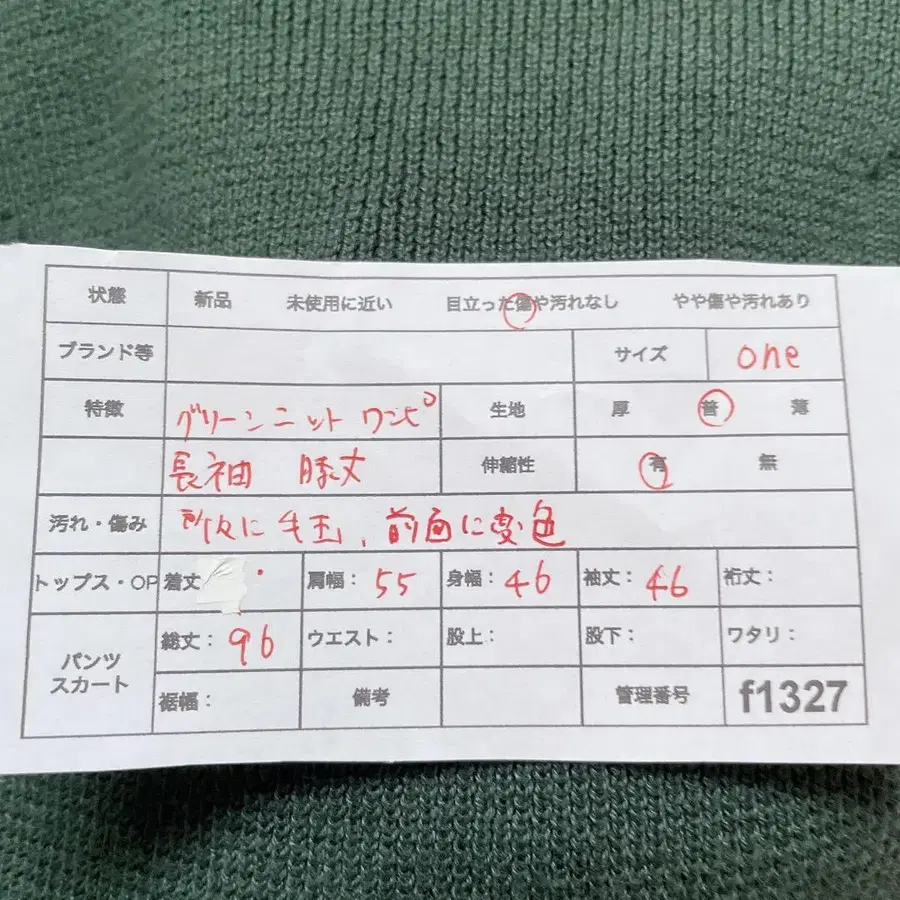 状態 新品 未使用に近い 目立った傷や汚れなし やや傷や汚れあり
ブランド等 サイズ one
特徴 グリーンニット ワンピ 生地 厚 普 薄
長袖 膝丈 伸縮性 有 無
汚れ・傷み 所々に毛玉、前面に変色
トップス・OP 着丈 肩幅: 55 身幅: 46 袖丈: 46 裄丈:
パンツ スカート 総丈: 96 ウエスト: 股上: 股下: ワタリ:
裾幅: 備考 管理番号 f1327